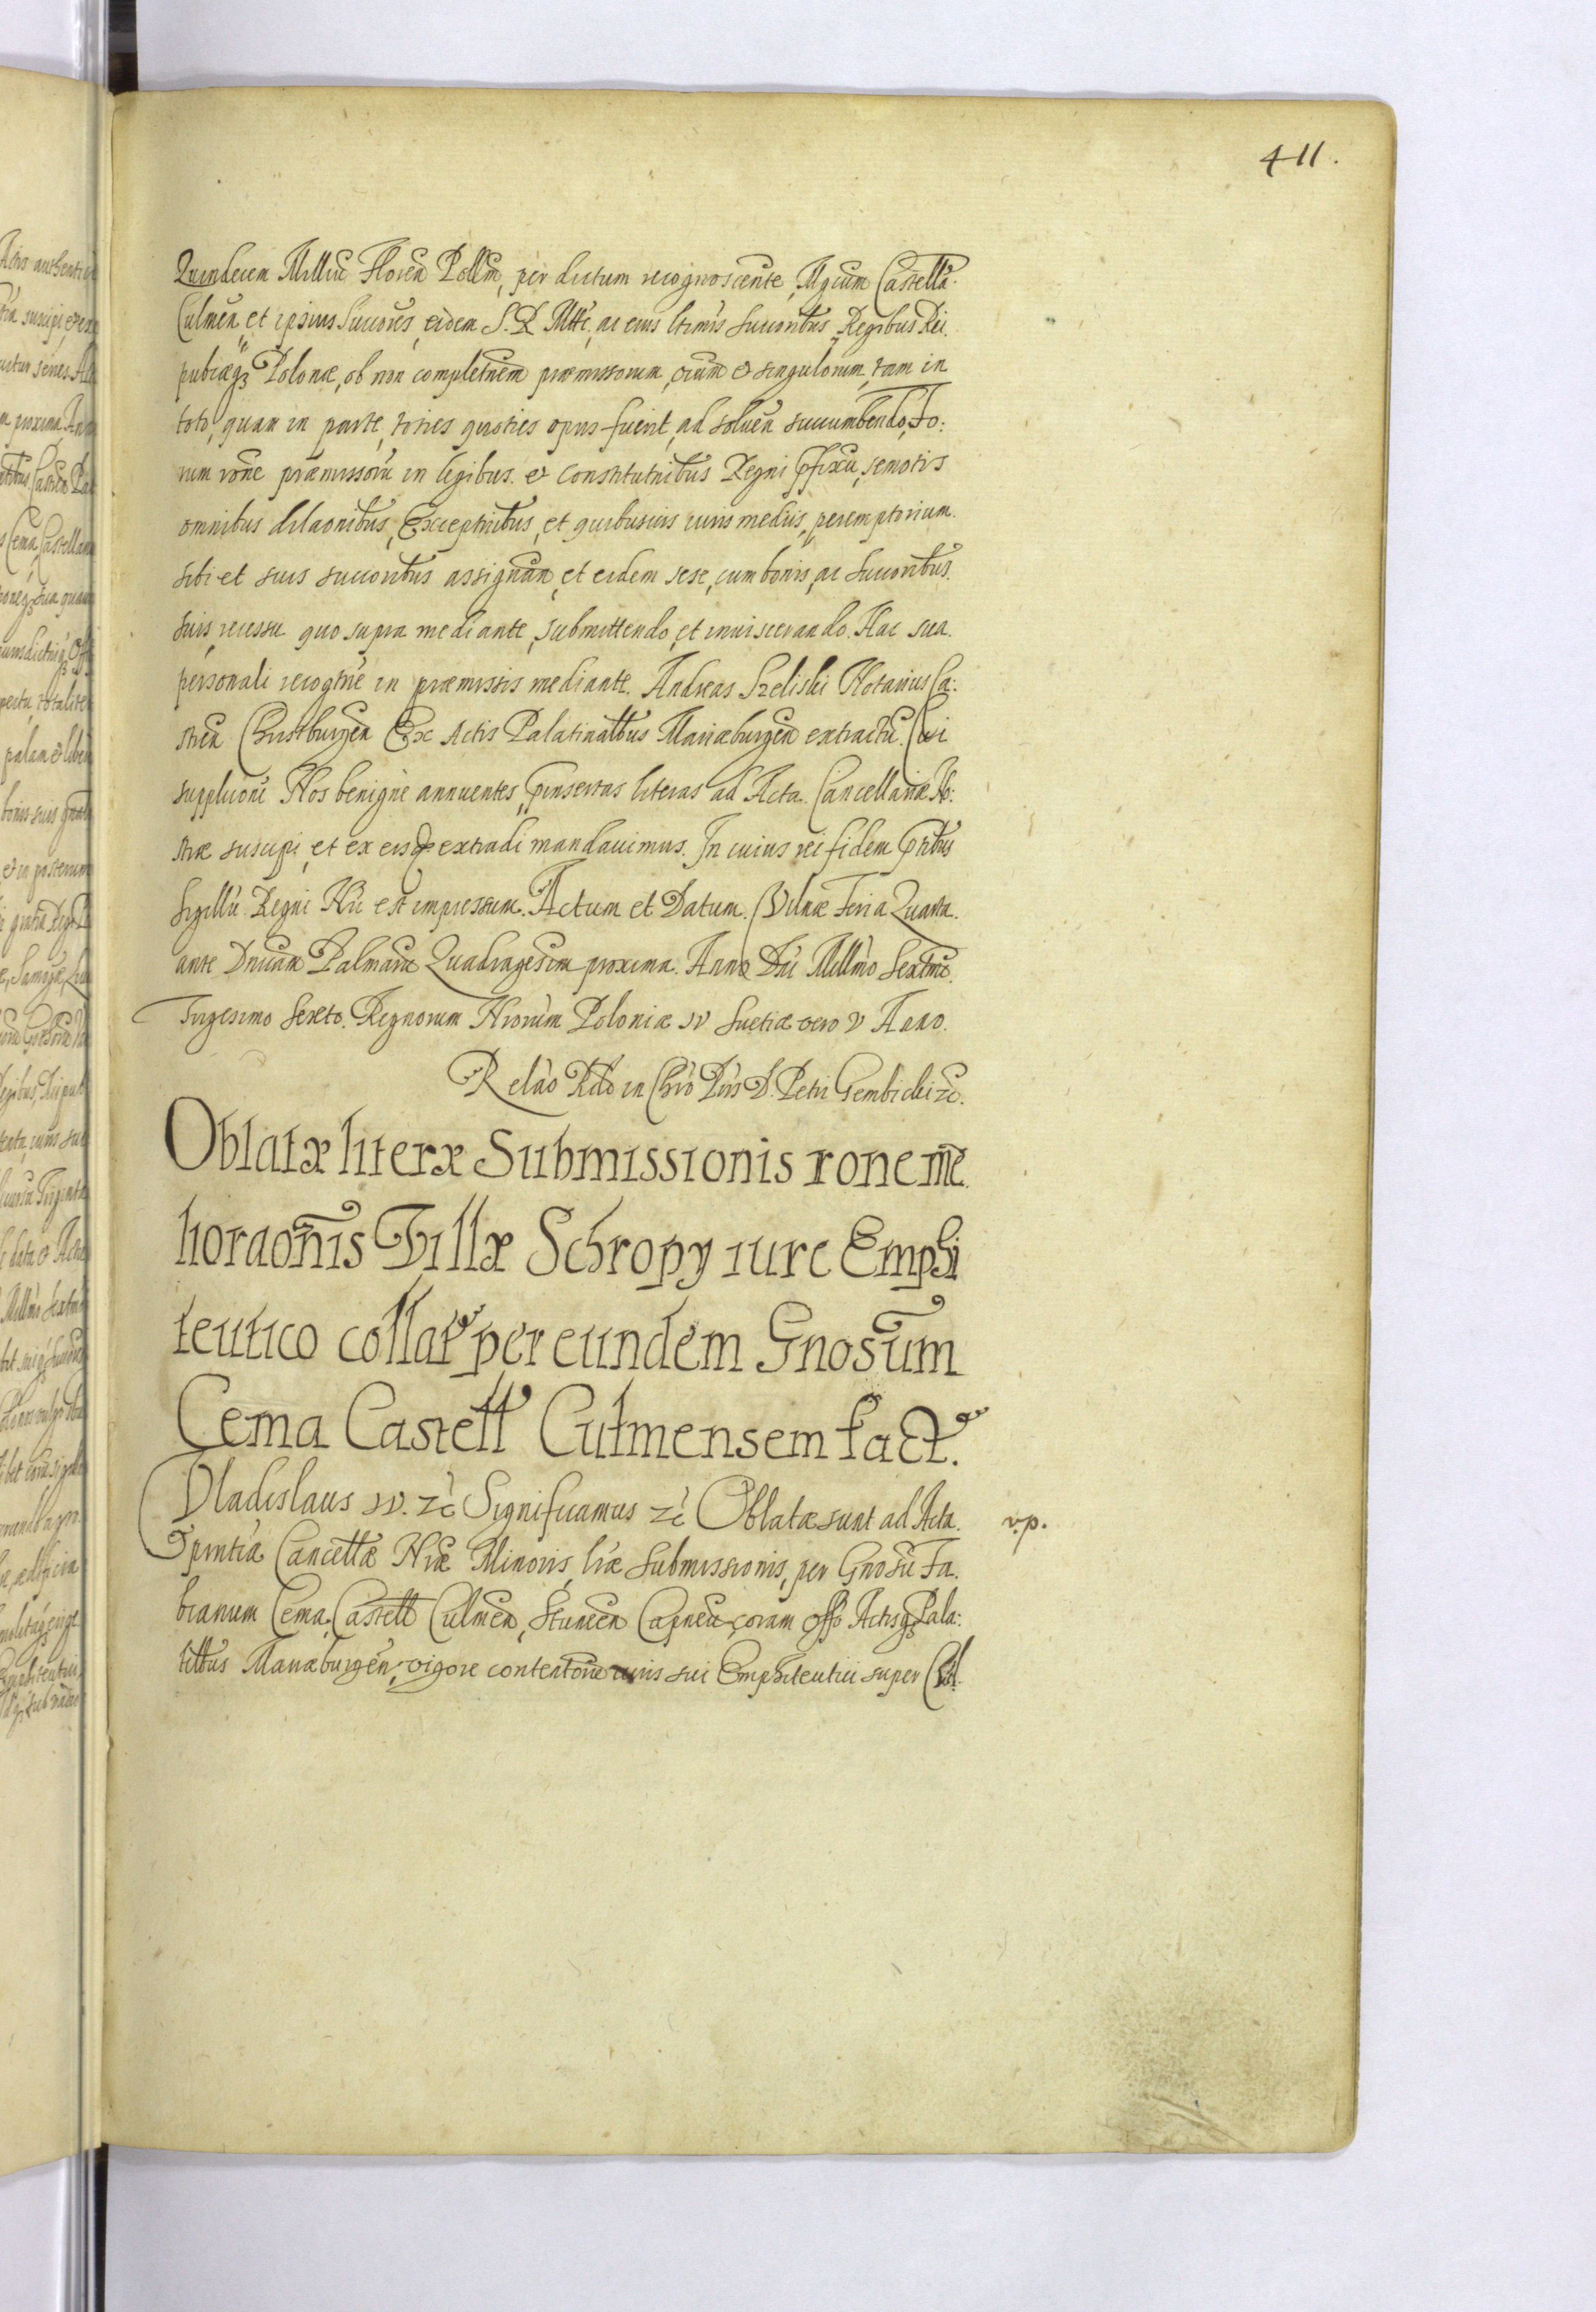 411.
Quindecim Millium Floren Pollm, per dictum recognoscente, Mgcum Castella.
Culmen et ipsius Succores, eidem S. R. Mtti, ac eius ltimis succoribus Regibus Rei
pubcæqз Polonæ, ob non completnem præmissorum, oium et singulorum, tam in
toto, quam in parte, toties quoties opus fuerit, ad soluen succumbendo, Fo:
rum rone præmissoru in legibus et Constitutnibus Regni pfixu, semotis
omnibus dilaonibus, Exceptnibus, et quibusuis iuris mediis, peremptorium.
sibi et suis succoribus assignan, et eidem sese, cum bonis, ac succoribus.
suis, recessu quo supra mediante, submittendo, et inuiscerando. Hac sua.
personali recogtne in præmissis mediante. Andreas Szeliski Notarius Ca:
stren Christburgen Ex Actis Palatinatbus Mariæburgen extractu. Cui
supplicaoni Nos benigne annuentes, pinsertas literas ad Acta Cancellariæ No:
stræ suscipi, et ex eisde extradi mandauimus. In cuius rei fidem pntibus
Sigillu Regni Nri est impressum. Actum et Datum. Vilnæ Feria Quarta.
ante Dnicam Palmaru Quadragesim proxima. Anno Dni Millmo Sextmo.
Trigesimo Sexto. Regnorum Nrorum Poloniæ IV Suetiæ vero V Anno.
Relao Rdo in Chro Pris D. Petri Gembicki zc.
Oblatæ literæ Submissionis rone me
lioraonis Villæ Schropy iure Emphi
teutico collat per eundem Gnosum
Cema Castell Culmensem fact.
Vladislaus IV. zc Significamus zc Oblatæ sunt ad Acta. v.p.
pntia Cancellæ Nræ Minoris, lræ Submissionis, per Gnosu Fa.
bianum Cema, Castell Culmen, Stumen Capneu, coram Offo Actisqз Pala:
titbus Mariæburgen, vigore contentorum iuris sui Emphiteutici super Vil